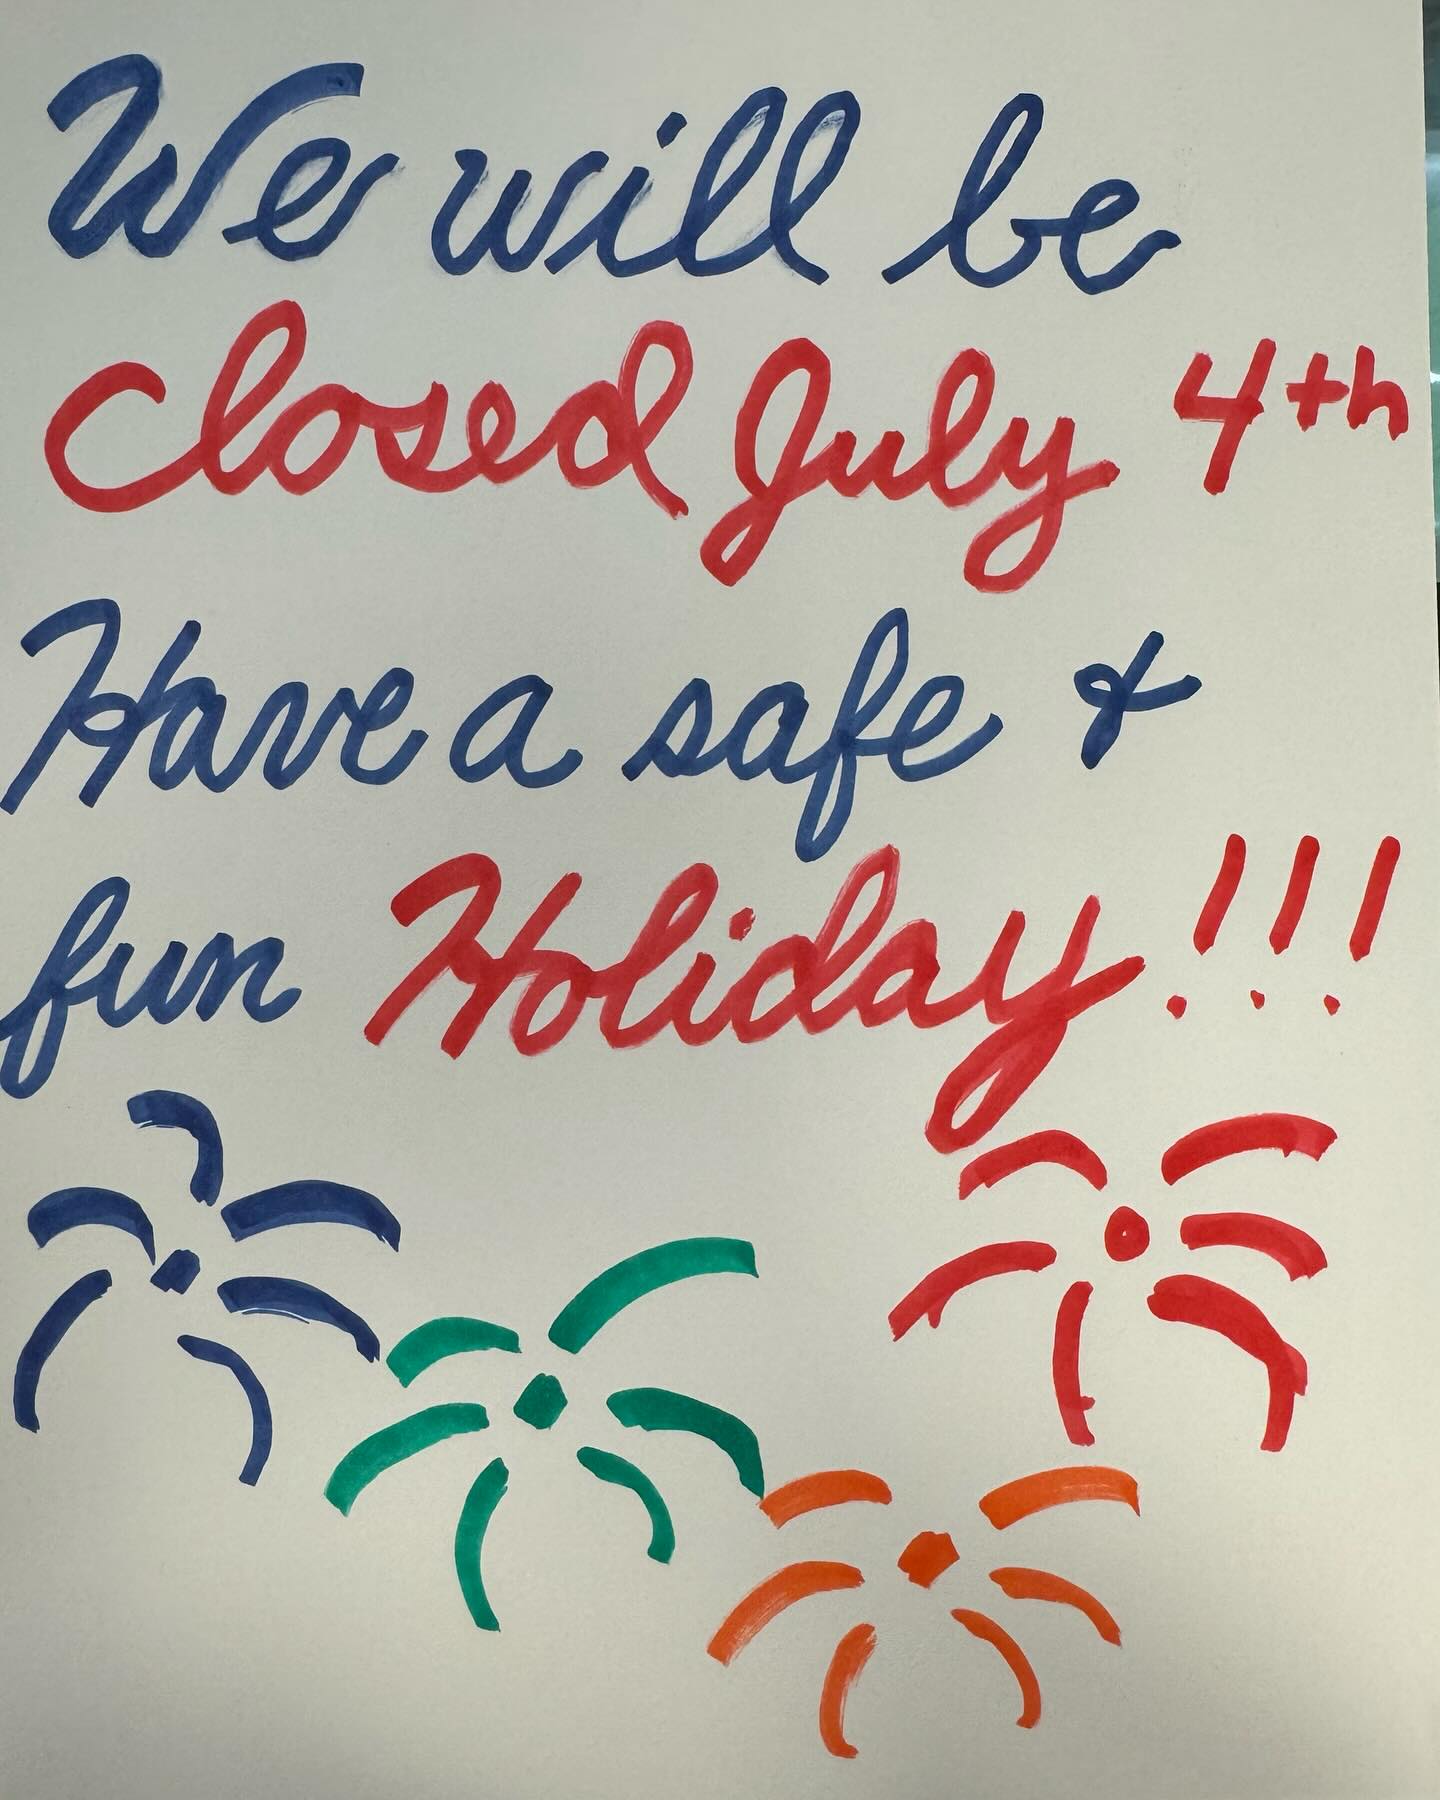 We will be
closed July 4th
Have a safe &
fun Holiday!!!